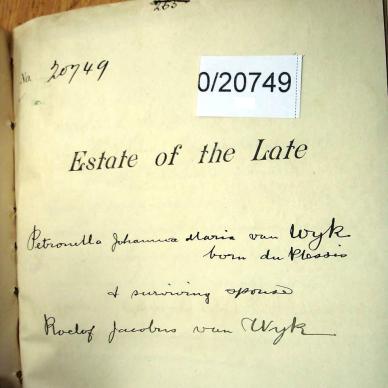 265
No. 20749
0/20749
Estate of the Late
Petronella Johanna Maria van Wyk
born du Plessis
& surviving spouse
Roelof Jacobus van Wyk